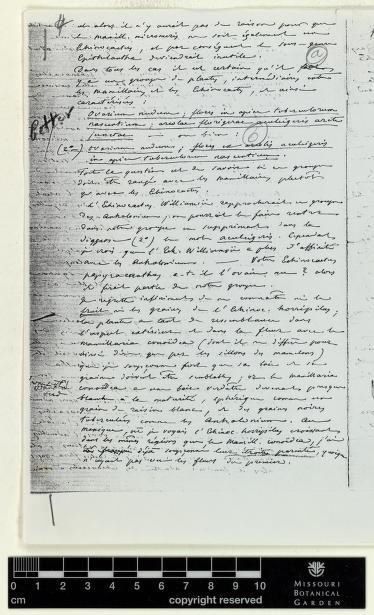 et alors il n'y aurait pas de raison pour que
le mamill. micromeris ne soit également un
Echinocactus, et par conséquent le sous-genre
Epithelantha deviendrait inutile!
Dans tous les cas il est certain qu'il
y a une groupe de plants, intermédiaires entre
les Mamillaria et les Echinocacti, et ainsi
caractérisés:
Ovarium nudum; flores in apice tuberculorum
nascentium; areolae florigerae aculigeris arcte
junctae — ou bien:
(2°) ovarium nudum; flores ex areolis aculigeris
in apice tuberculorum nascentium.
Toute la question est de savoir si ce groupe
doit être rangé avec les Mamillaria plutôt
qu'avec les Echinocactus.
L'Echinocactus Williamsii rapprocherait ce groupe
des Anhalonium; on pourrait le faire rentrer
dans notre groupe en supprimant dans la
(2°) le mot aculigeris. Cependant
je crois que l'Ech. Williamsii a plus d'affinité
avec les Anhalonium. Votre Echinocactus
papyracanthus a-t-il l'ovaire nu? alors
il ferait partie de notre groupe.
Je regrette infiniment de ne connaître ni le
fruit ni les graines de l'Echinoc. horripilus;
la plante a tant de ressemblance dans
l'aspect extérieur et dans la fleur avec le
mamillaria conoidea (dont il ne diffère pour
ainsi dire que par les sillons des mamelons)
que je soupçonne fort que sa baie et ses
graines doivent être semblables; or le mamillaria
conoidea a une baie verdâtre devenant presque
blanche à la maturité, sphérique comme un
grain de raisin blanc, et des graines noires
tuberculées comme les Anhalonium. Au
mexique, où je voyais l'Echinoc. horripilus croissant
dans les mêmes régions que le Mamill. conoidea, j'ai
déjà soupçonné leur étroite parenté, quoique
n'ayant pas vu les fleurs du premier.
Better
a
6
0 1 2 3 4 5 6 7 8 9 10
cm
copyright reserved
MISSOURI
BOTANICAL
GARDEN